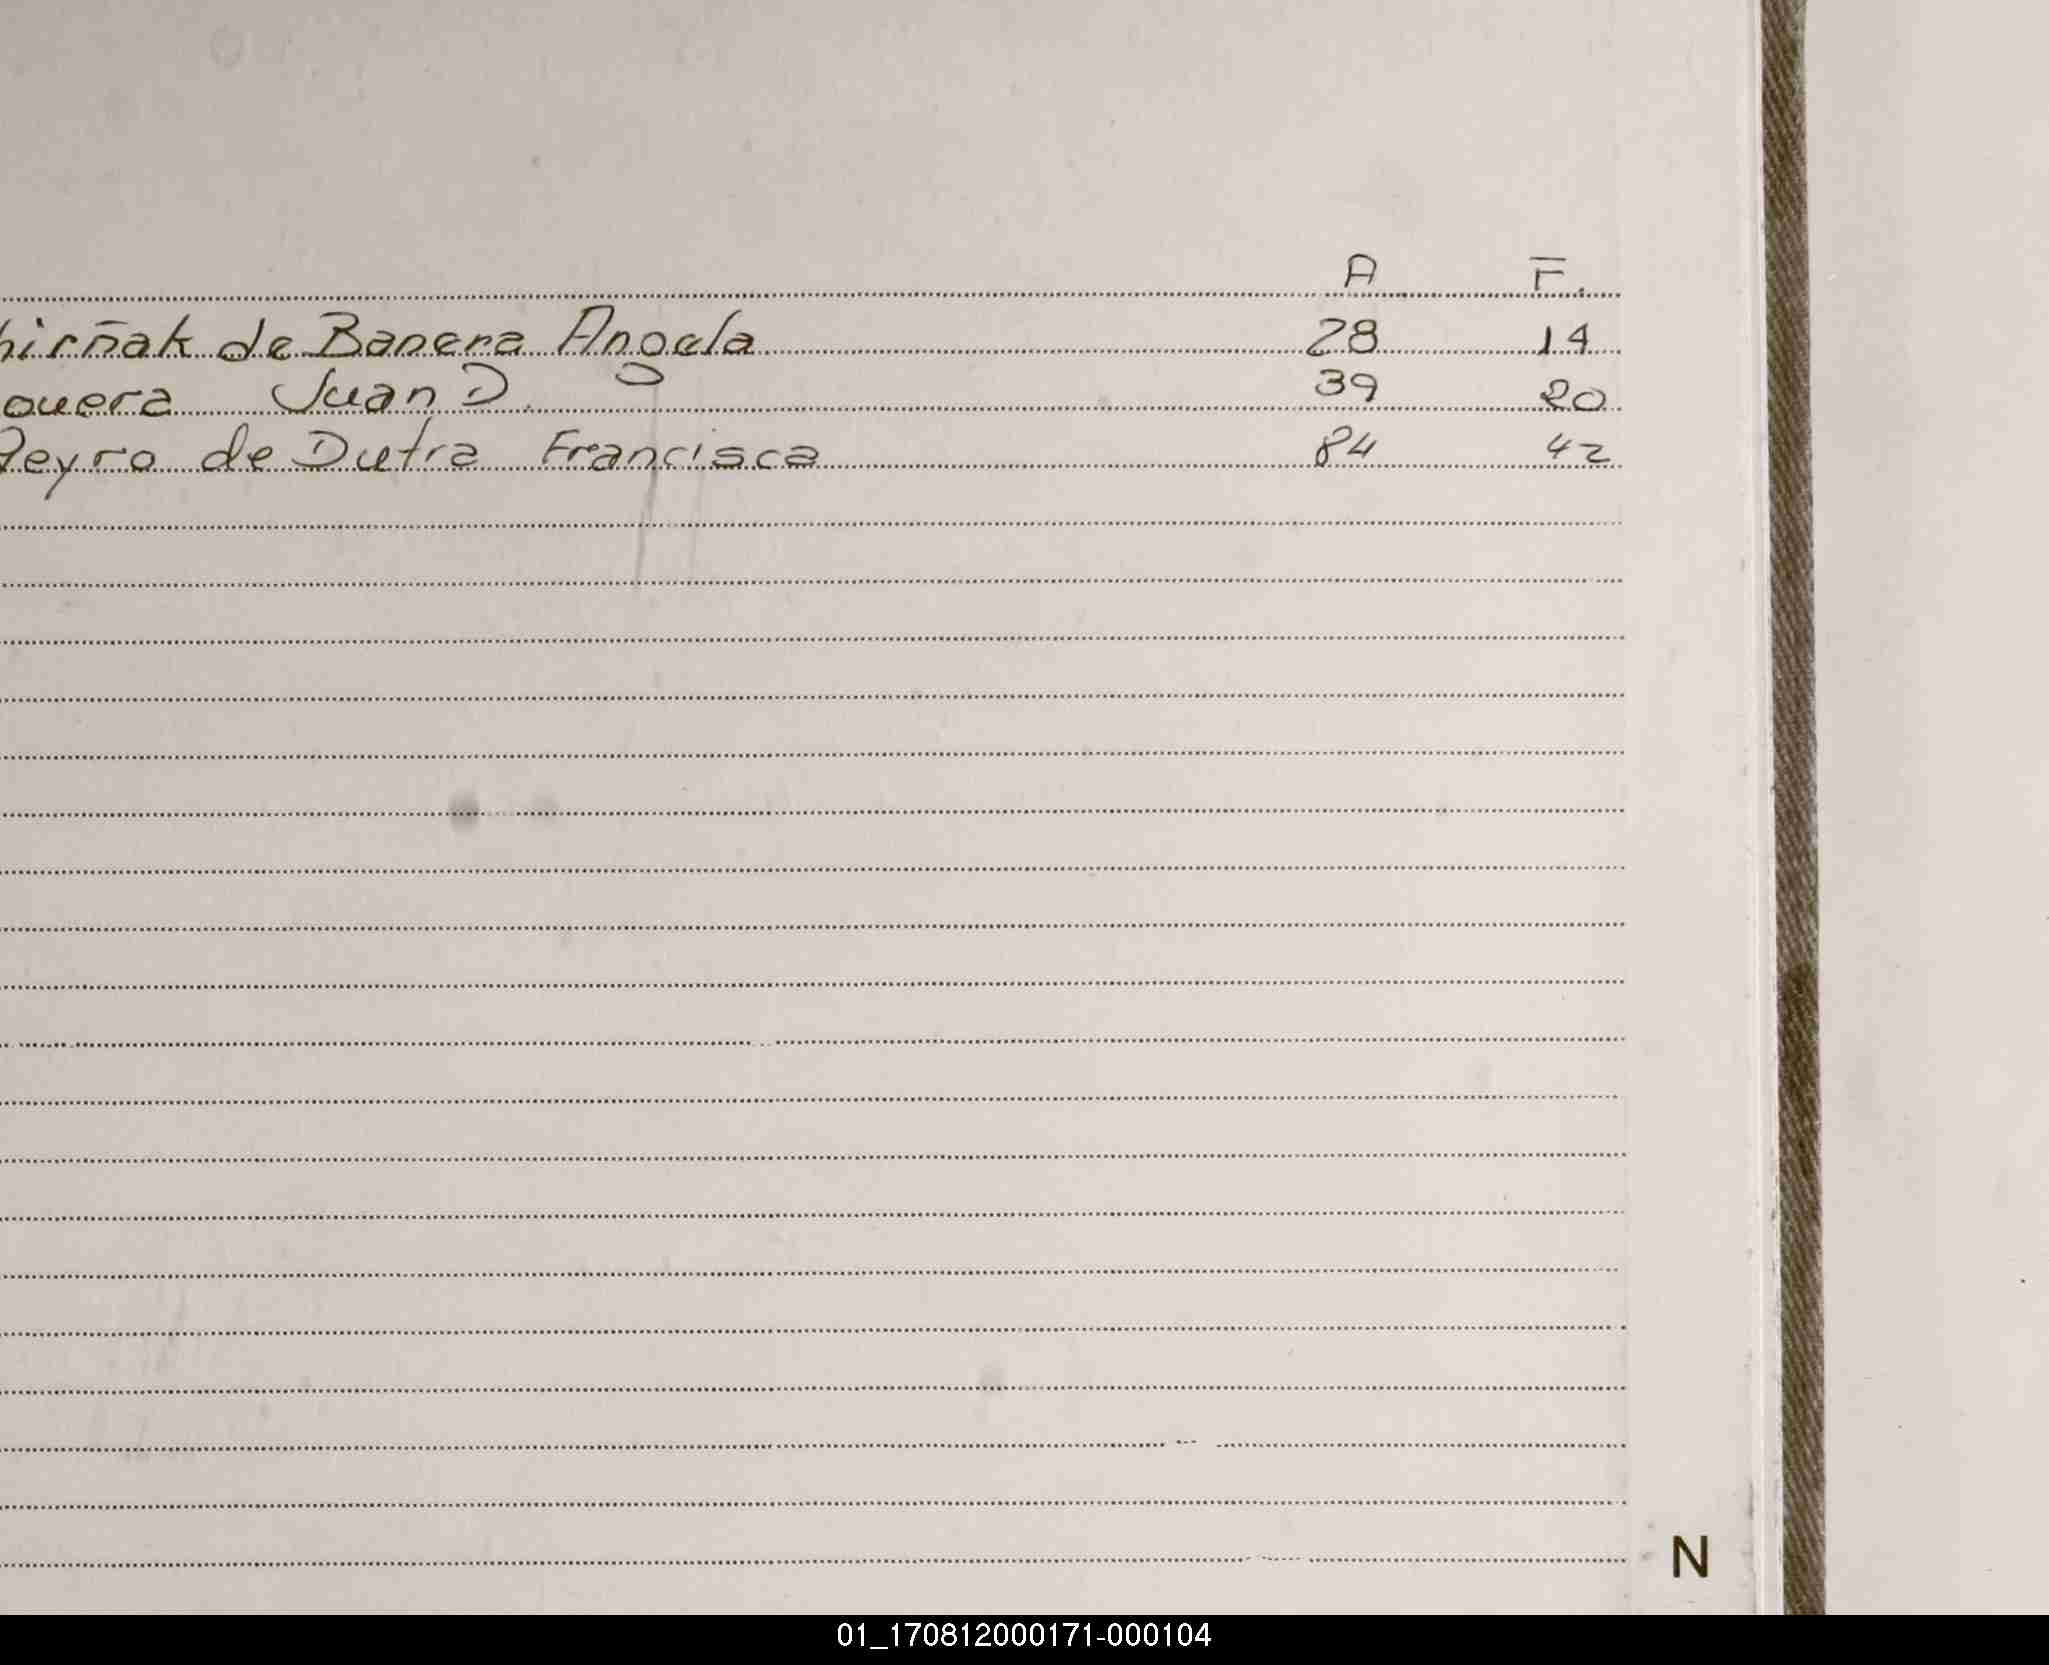 A F.
hirñak de Banera Angela 28 14
ouera Juan D. 39 20
Peyro de Dutra Francisca 84 42
N
01_170812000171-000104